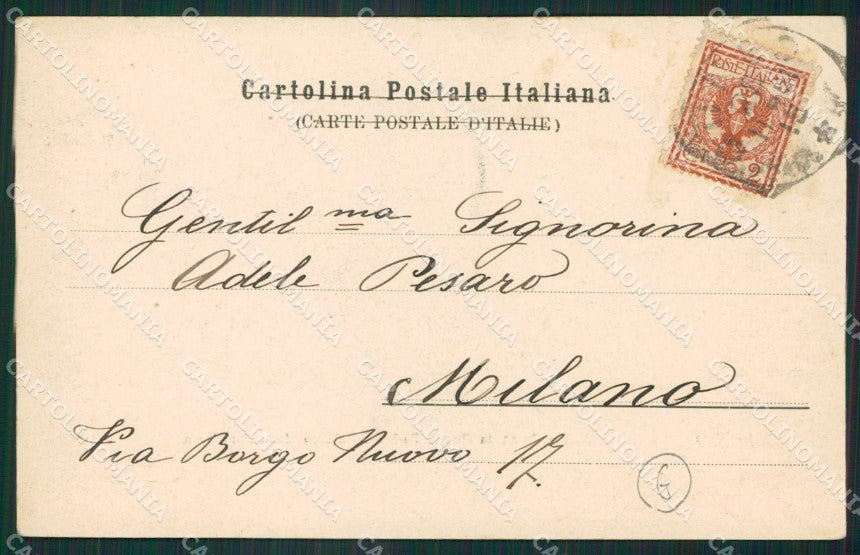 Cartolina Postale Italiana
(CARTE POSTALE D'ITALIE)
POSTE ITALIANE
2
Gentil ma Signorina
Adele Pesaro
Milano
Via Borgo Nuovo 17.
CARTOLINOMANIA